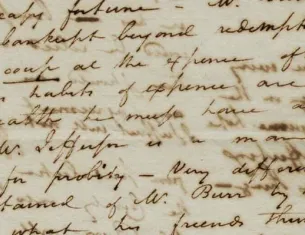 easy fortune – Mr.
bankrupt beyond redemption
coup at the expence of
habits of expence are
wealth he must have
Mr. Jefferson is a man
for probity – Very differen
tained of Mr. Burr by
what his friends thin